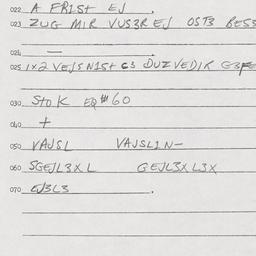 022 A FR1ST EJ .
023 ZUG MIR VUS3R EJ OST3 BESS
024 —
025 1x2 VEJSN1ST C3 DUZVEDIR G3FE
030 StoK EQ#60
040 +
050 VAJSL VAJSL1N-
060 SGEJL3XL GEJL3XL3X
070 EJ3L3 .